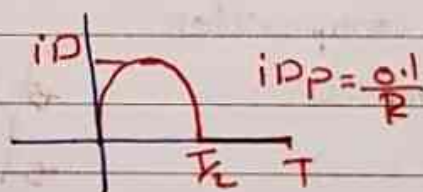 iD
iDp = 0.1/R
T/2 T